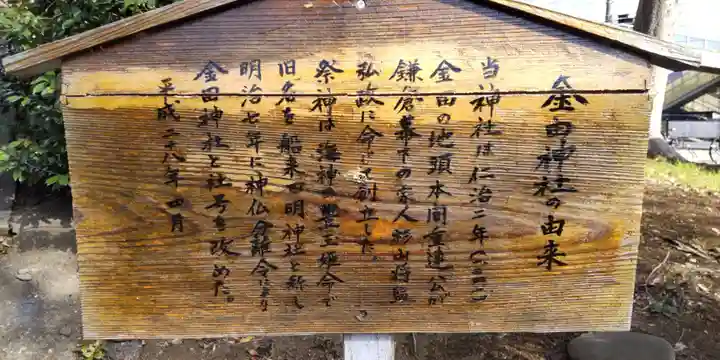 金田神社の由来
当神社は仁治二年(一二四一)
金田の地頭本間重連公が
鎌倉幕下の家人影山将監
弘政に命じ創立した。
祭神は海神の豊玉姫命で
旧名を船来田明神社と称し
明治七年に神仏分離令により
金田神社と社号を改めた。
平成二十八年四月